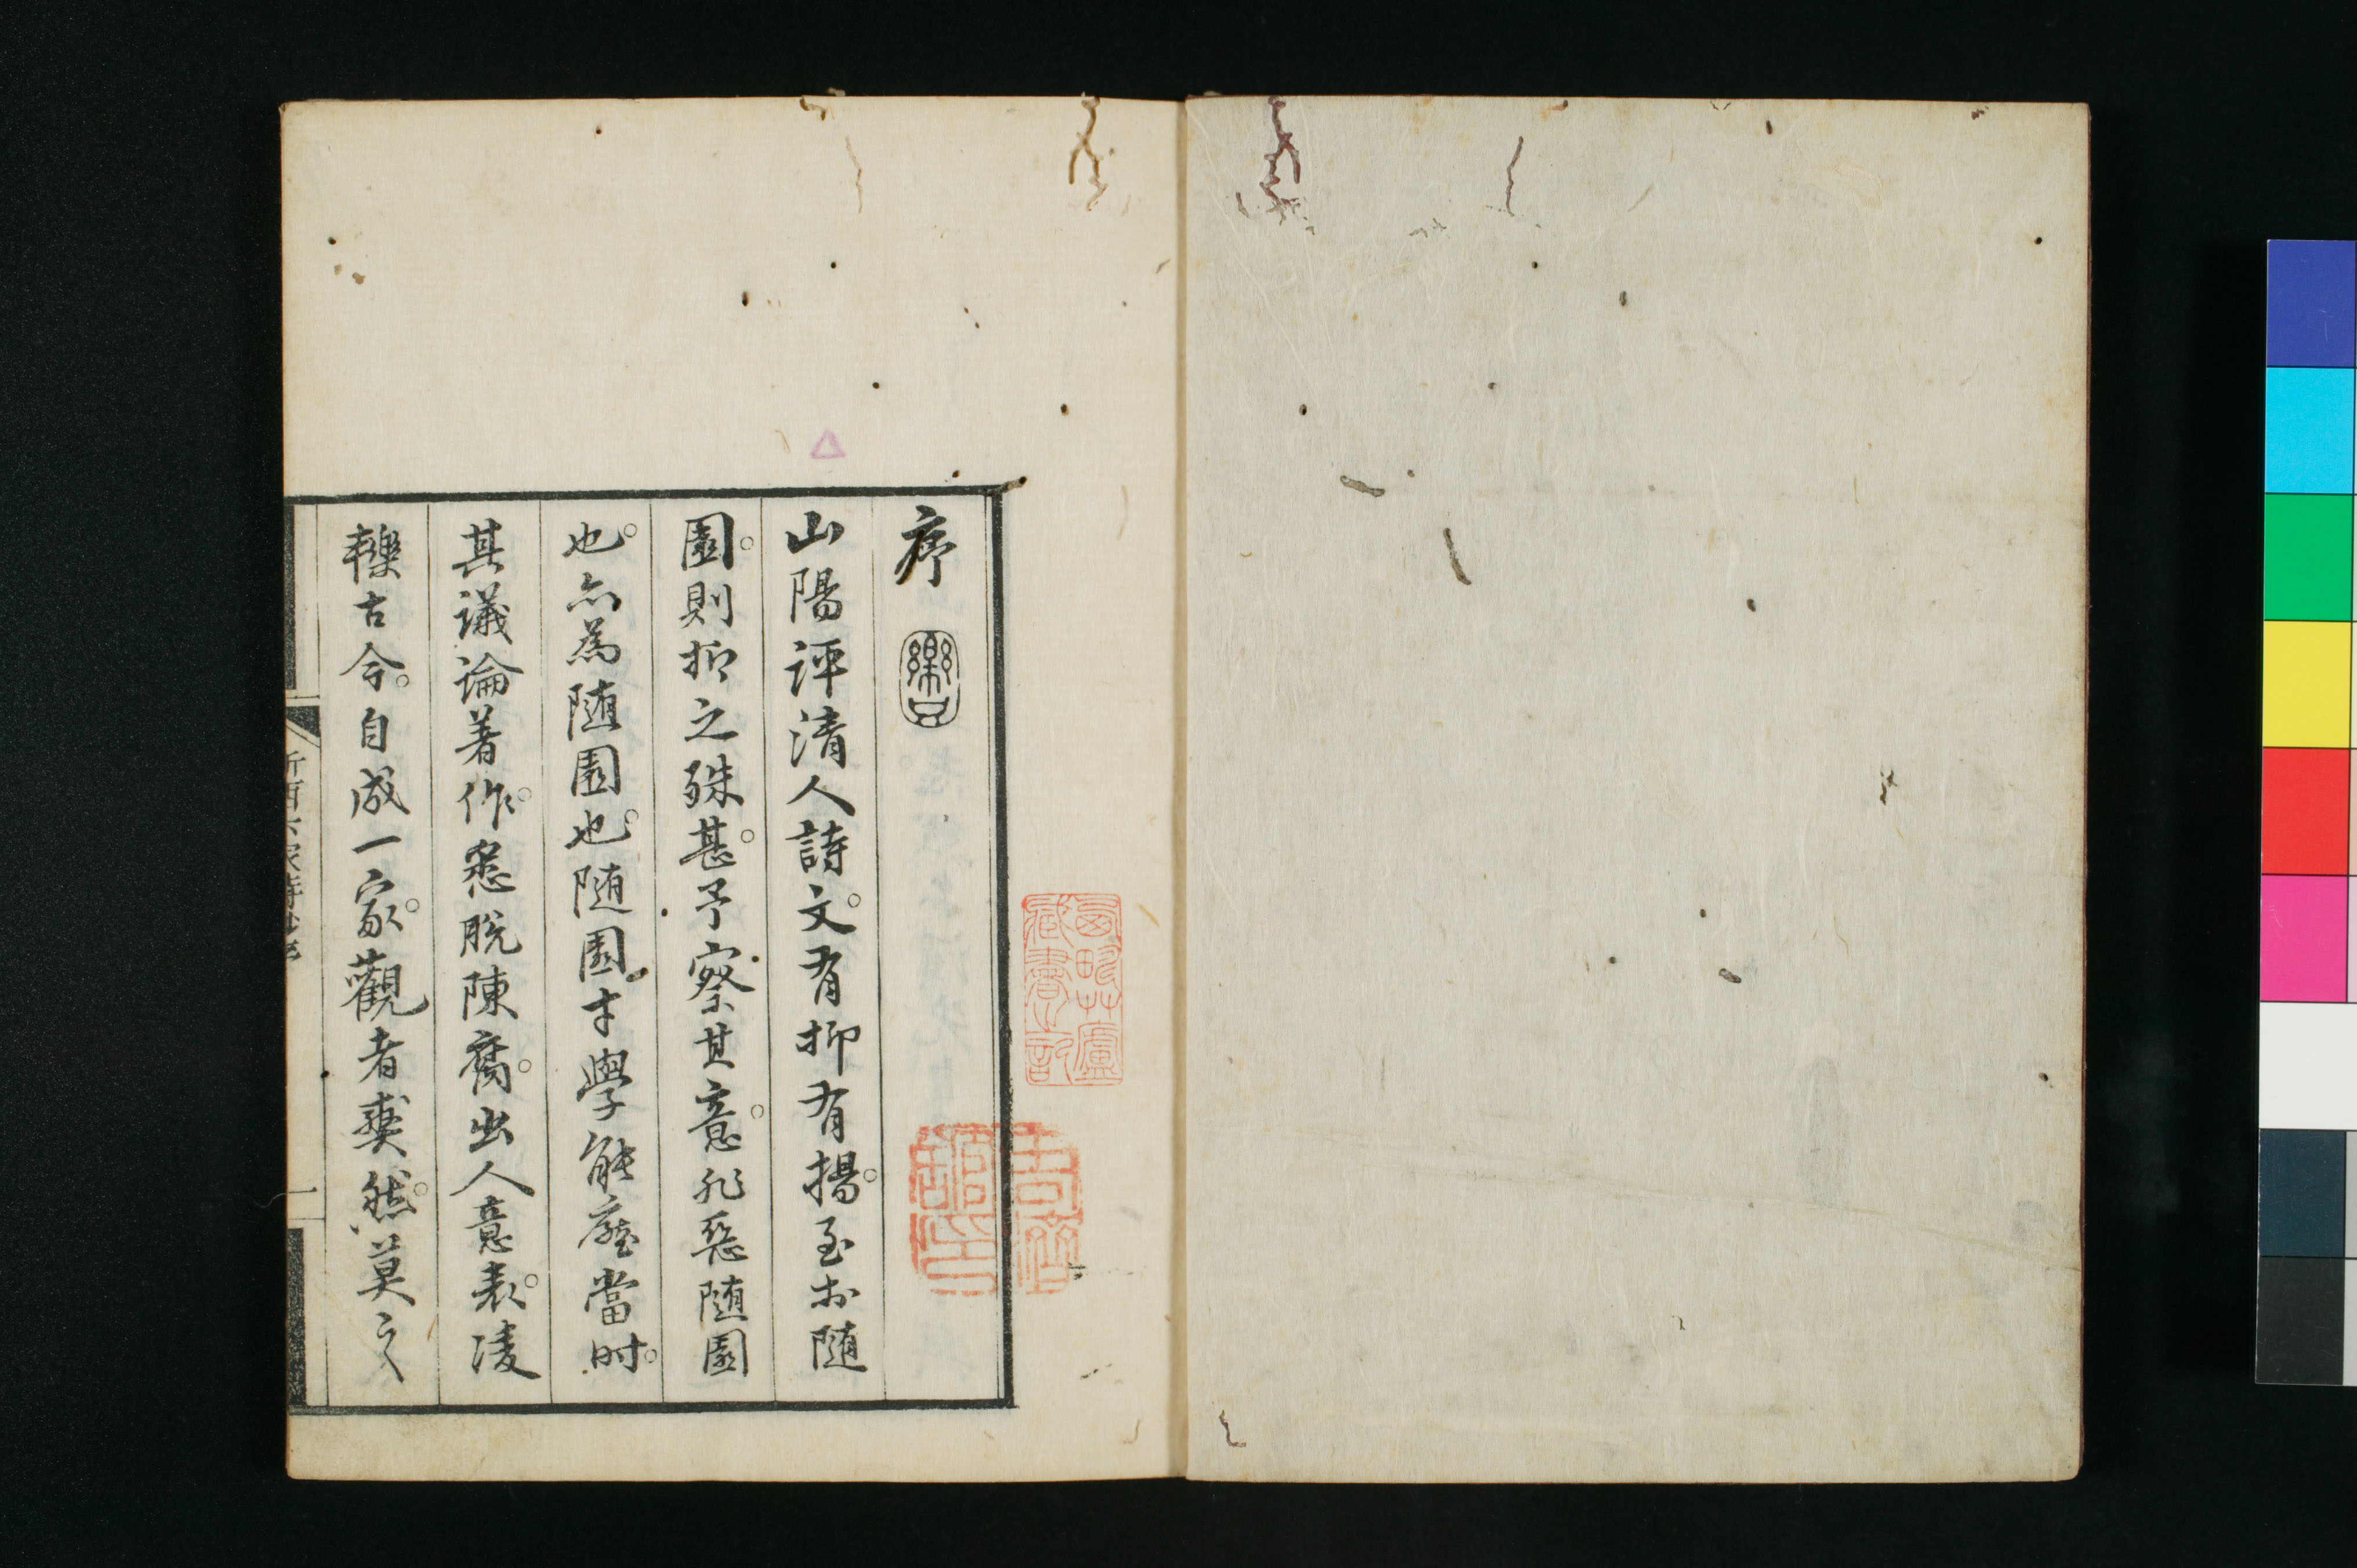 序
山陽評清人詩文。有抑有揚。至於随
園。則抑之殊甚。予察其意。非惡随園
也。亦為随園也。随園才學能蓋當時。
其議論著作。悉脱陳腐。出人意表。凌
轢古今。自成一家。觀者爽然。莫不
浙西六家詩鈔序
一